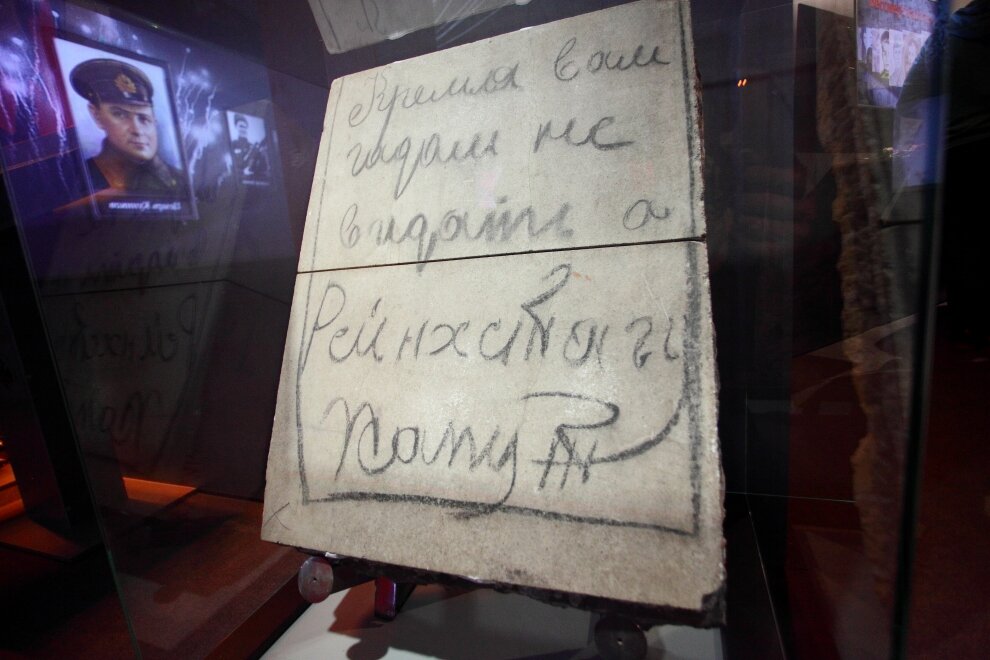 Кремля вам
гадам не
видать а
Рейнхстаг и
капут